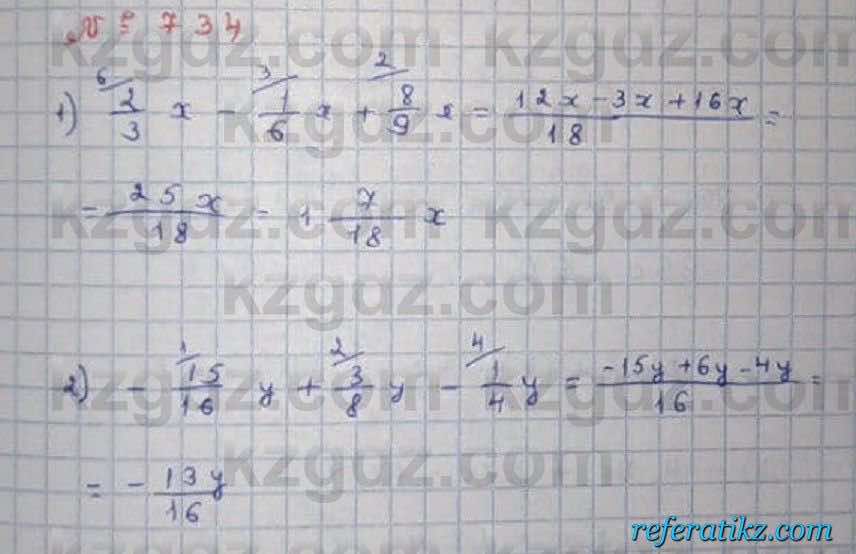 № 734
1) 2/3 x - 1/6 x + 8/9 x = (12x - 3x + 16x)/18 =
= 25x/18 = 1 7/18 x
2) - 15/16 y + 3/8 y - 1/4 y = (-15y + 6y - 4y)/16 =
= - 13y/16
6 3 2
1 2 4
kzgdz.com
referatikz.com